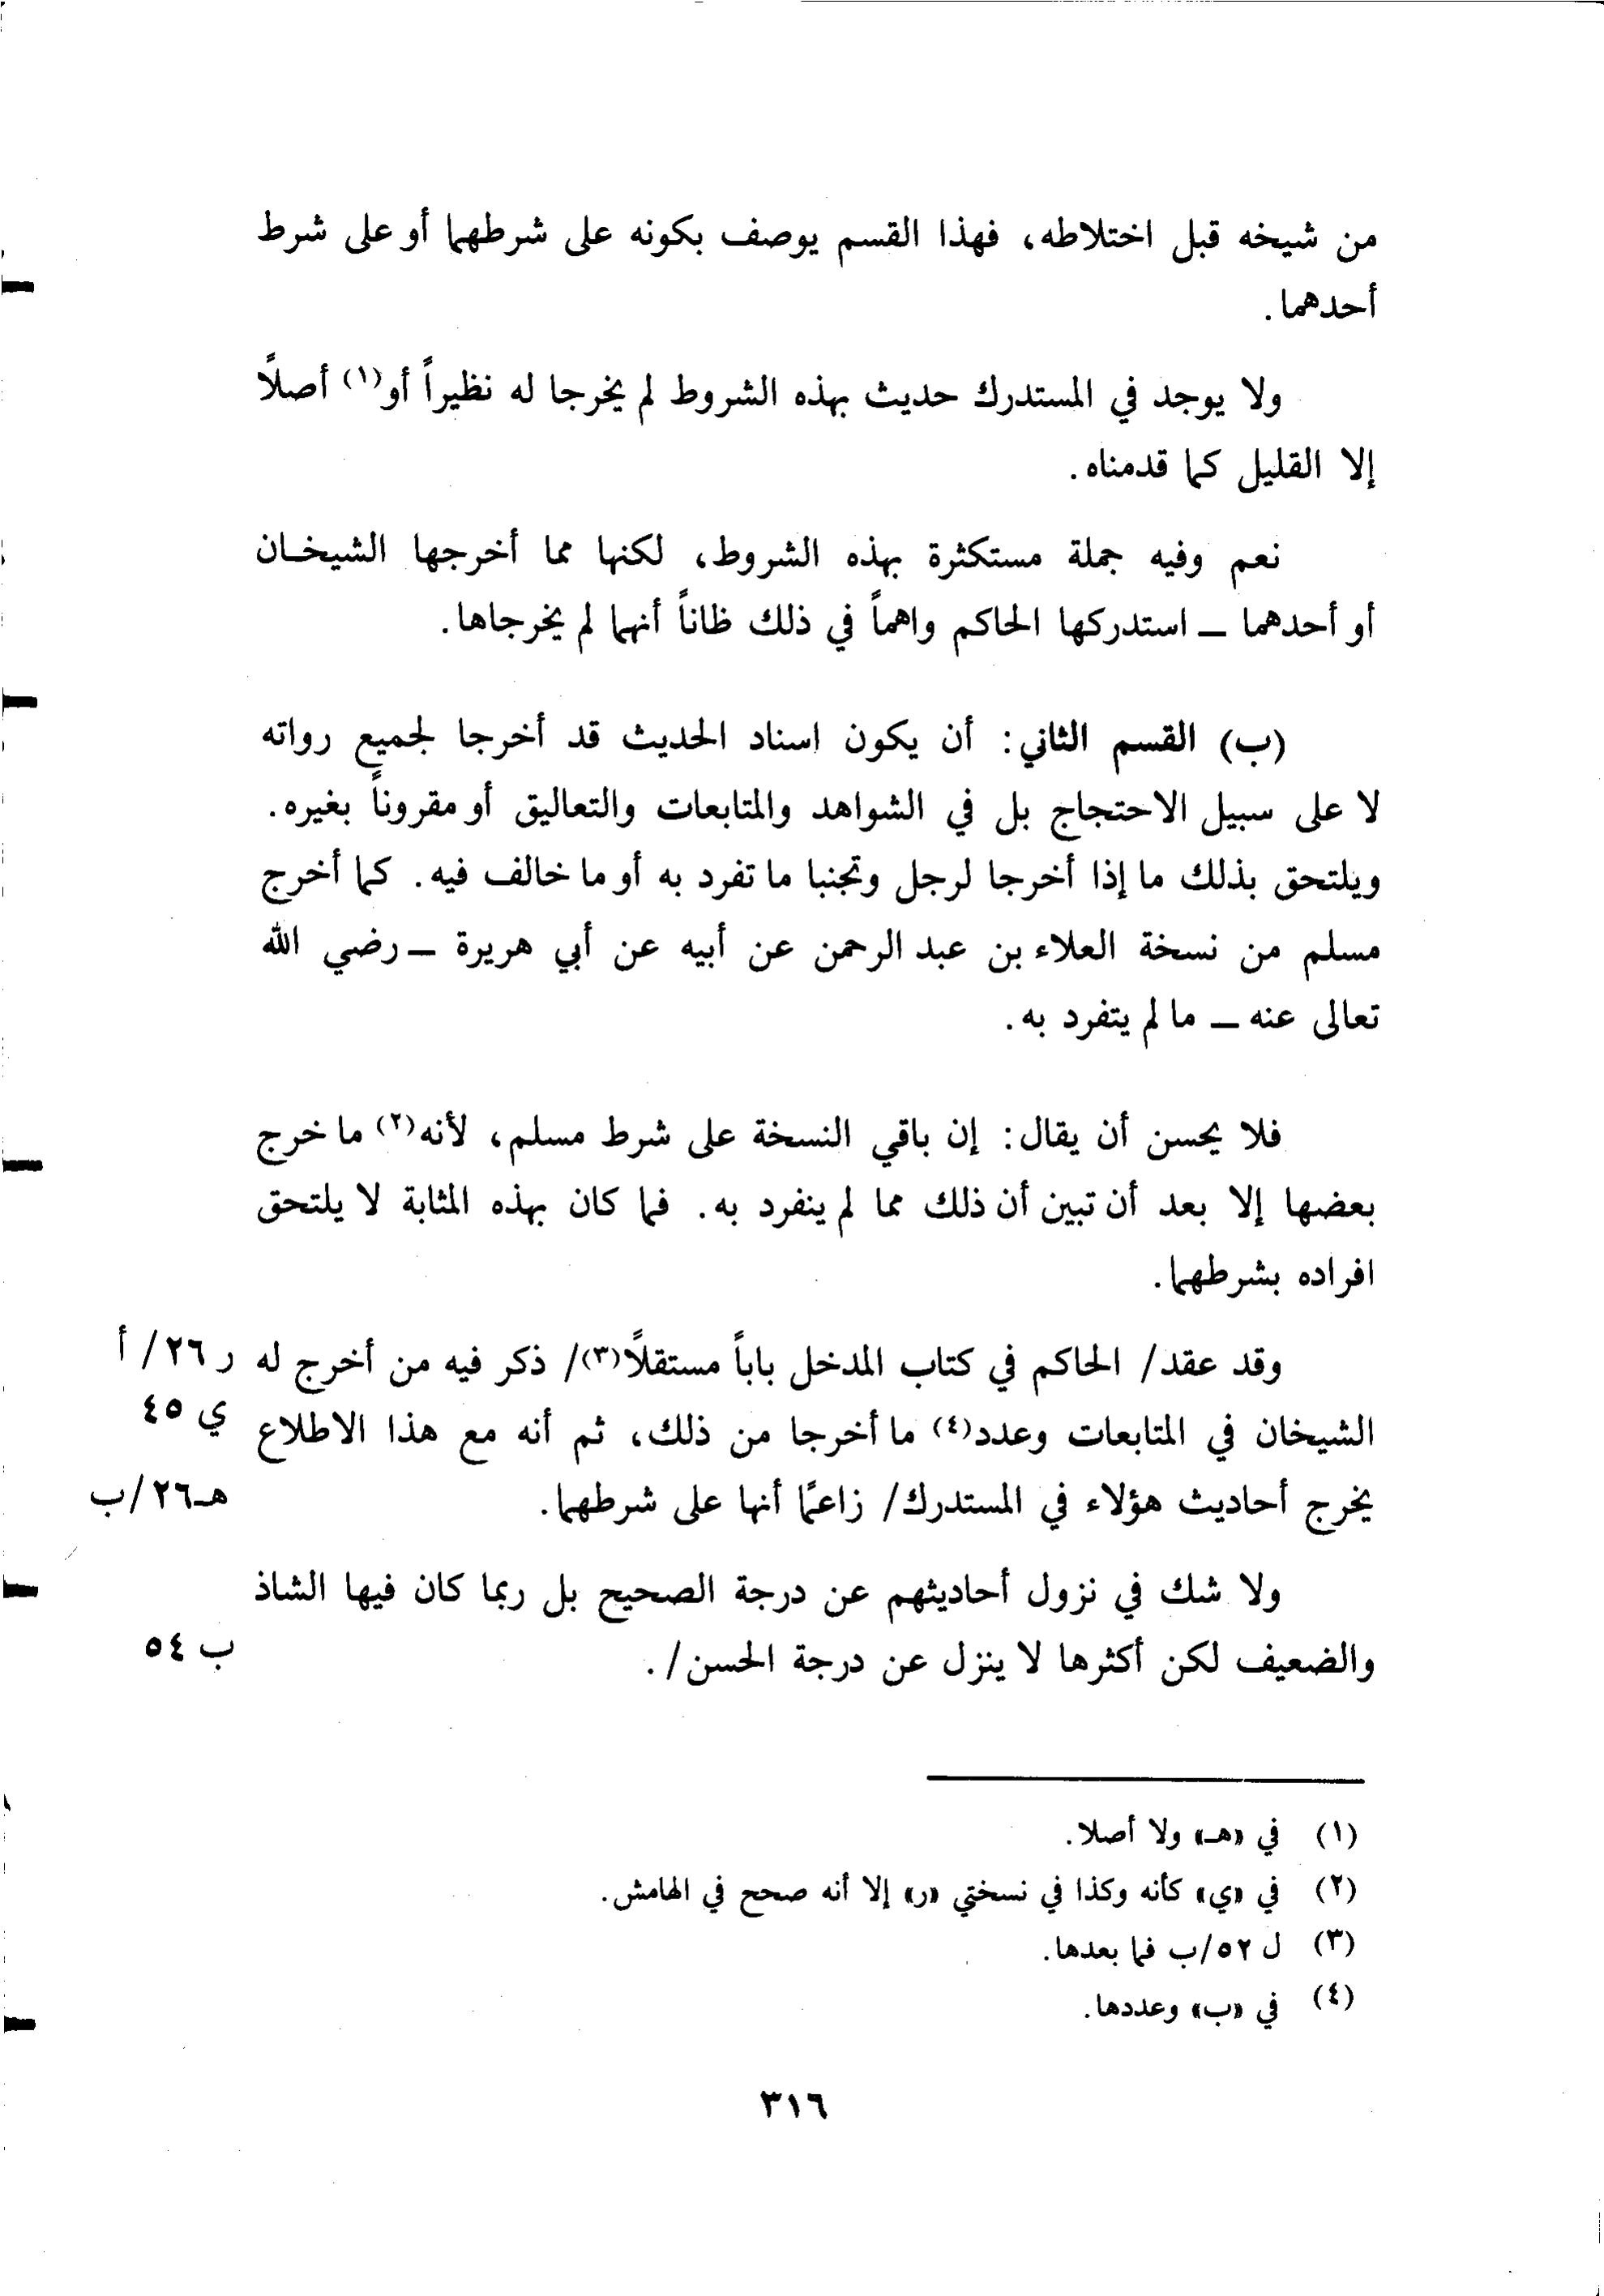 من شيخه قبل اختلاطه، فهذا القسم يوصف بكونه على شرطهما أو على شرط
أحدهما.
ولا يوجد في المستدرك حديث بهذه الشروط لم يخرجا له نظيراً أو(١) أصلاً
إلا القليل كما قدمناه.
نعم وفيه جملة مستكثرة بهذه الشروط، لكنها مما أخرجها الشيخان
أو أحدهما ــ استدركها الحاكم واهماً في ذلك ظاناً أنهما لم يخرجاها.
(ب) القسم الثاني: أن يكون اسناد الحديث قد أخرجا لجميع رواته
لا على سبيل الاحتجاج بل في الشواهد والمتابعات والتعاليق أو مقروناً بغيره.
ويلتحق بذلك ما إذا أخرجا لرجل وتجنبا ما تفرد به أو ما خالف فيه. كما أخرج
مسلم من نسخة العلاء بن عبد الرحمن عن أبيه عن أبي هريرة ــ رضي الله
تعالى عنه ــ ما لم يتفرد به.
فلا يحسن أن يقال: إن باقي النسخة على شرط مسلم، لأنه(٢) ما خرج
بعضها إلا بعد أن تبين أن ذلك مما لم ينفرد به. فما كان بهذه المثابة لا يلتحق
افراده بشرطهما.
وقد عقد/ الحاكم في كتاب المدخل باباً مستقلاً(٣)/ ذكر فيه من أخرج له ر ٢٦/ أ
الشيخان في المتابعات وعدد(٤) ما أخرجا من ذلك، ثم أنه مع هذا الاطلاع ي ٤٥
يخرج أحاديث هؤلاء في المستدرك/ زاعمًا أنها على شرطهما. هـ٢٦/ب
ولا شك في نزول أحاديثهم عن درجة الصحيح بل ربما كان فيها الشاذ
والضعيف لكن أكثرها لا ينزل عن درجة الحسن/. ب ٥٤
(١) في «هـ» ولا أصلا.
(٢) في «ي» كأنه وكذا في نسختي «ر» إلا أنه صحح في الهامش.
(٣) ل ٥٢/ب فما بعدها.
(٤) في «ب» وعددها.
٣١٦